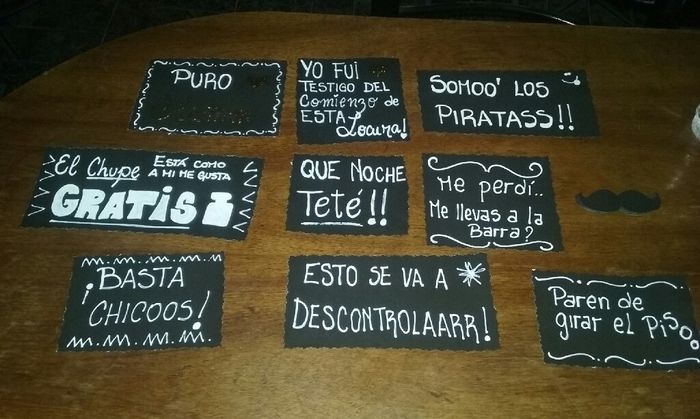 PURO
YO FUI
TESTIGO DEL
Comienzo de
ESTA
Locura!
SOMOO' LOS
PIRATASS!!
El Chupe ESTÁ COMO
A MI ME GUSTA
GRATIS
QUE NOCHE
Teté!!
Me perdí..
Me llevas a la
Barra?
¡BASTA
CHICOOS!
ESTO SE VA A
DESCONTROLAARR!
Paren de
girar el Piso